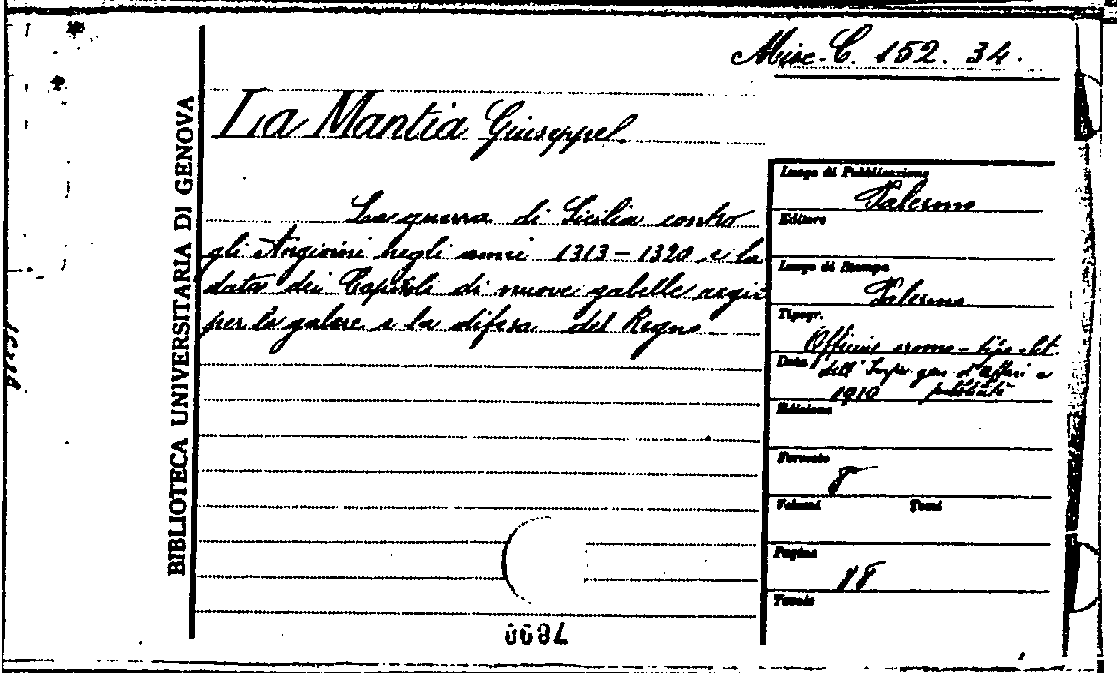 Misc. C. 152. 34.
BIBLIOTECA UNIVERSITARIA DI GENOVA
La Mantia Giuseppe.
La guerra di Sicilia contro
gli Angioini negli anni 1313 - 1320 e la
data dei Capitoli di nuove gabelle regie
per le galere e la difesa del Regno
Luogo di Pubblicazione
Palermo
Editore
Luogo di Stampa
Palermo
Tipogr.
Officine cromo-tipo-lit.
Data dell'Impr. gen. d'affari e
1910 pubblicità
Edizione
Formato
8
Volumi Tomi
Pagine
18
Tavole